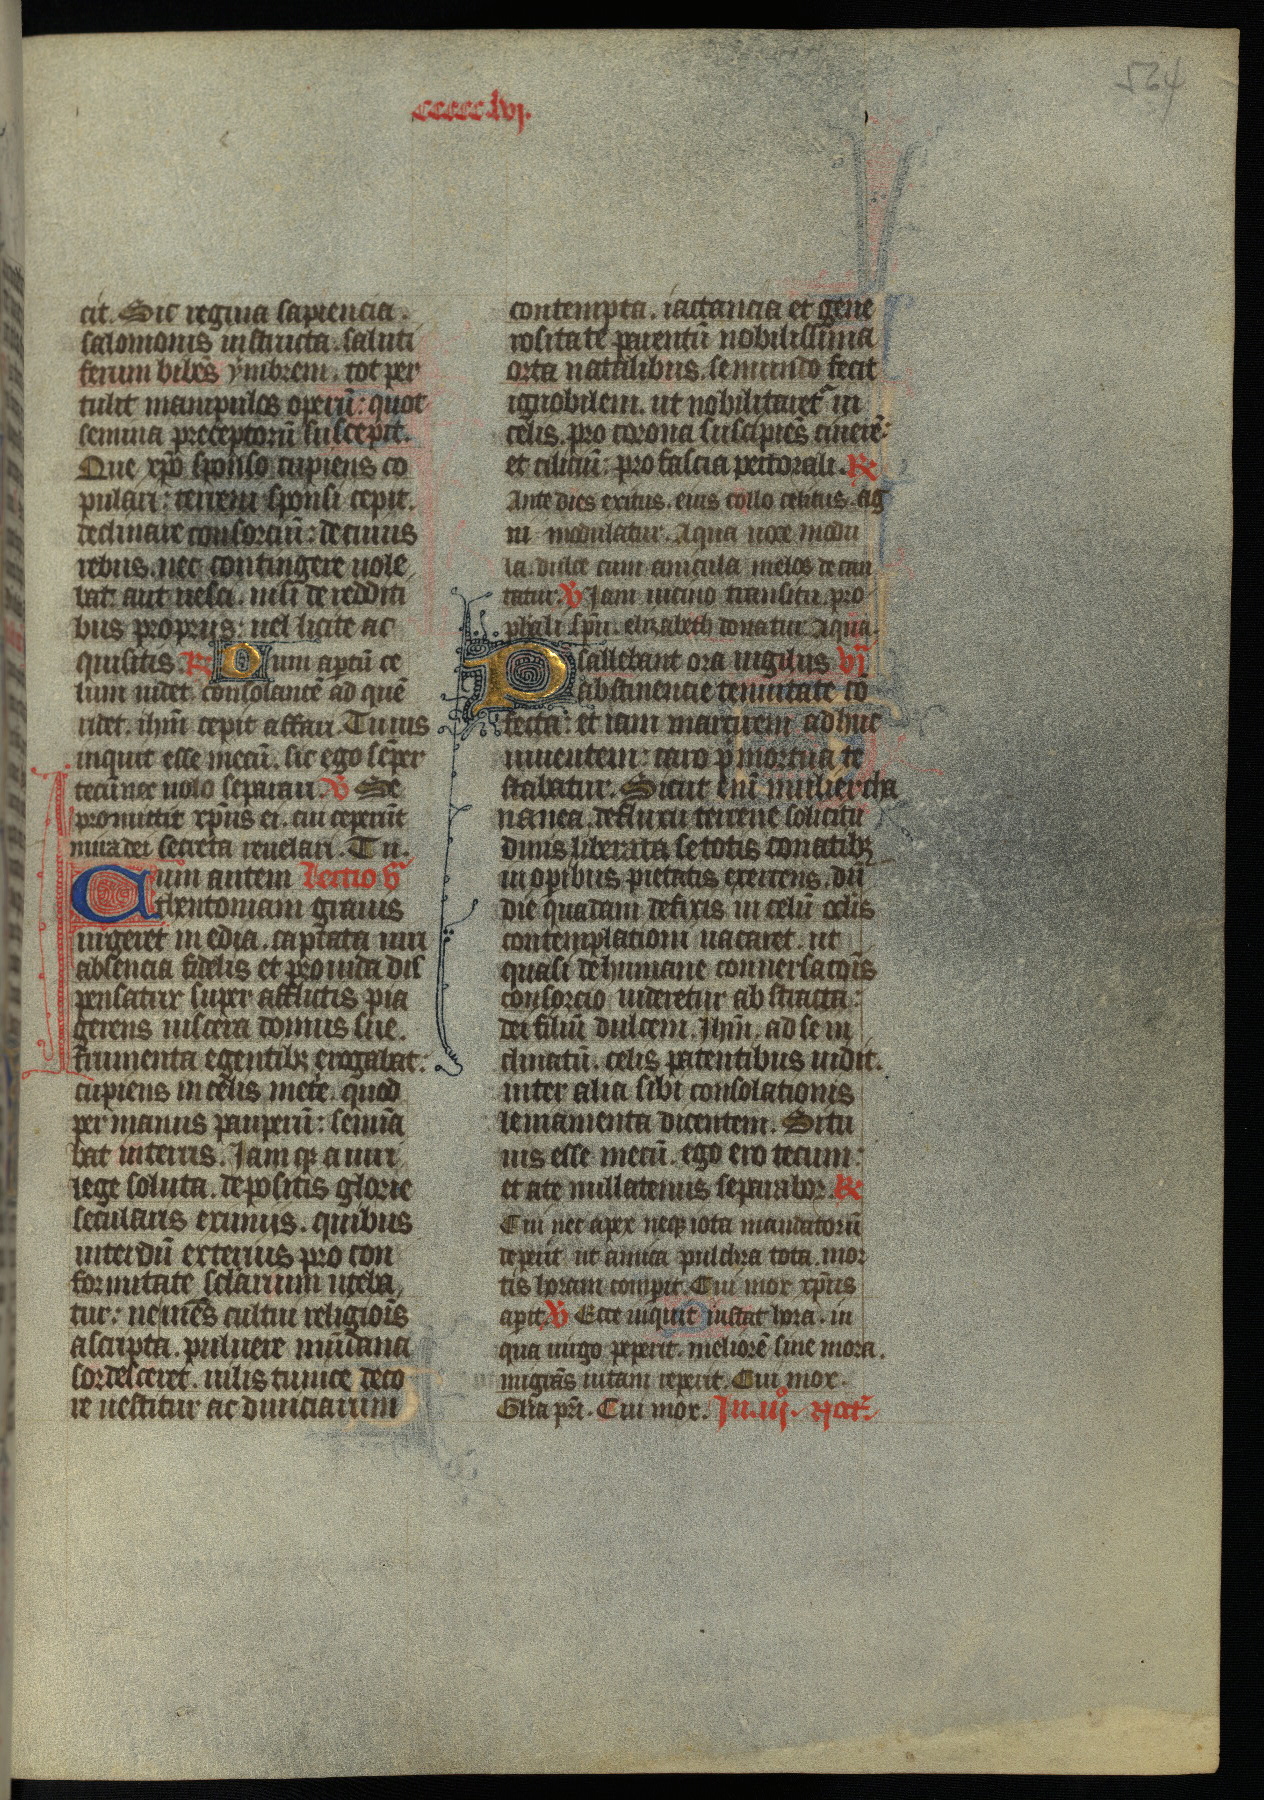 524
ccccclvj.
cit. Sic regina sapiencia.
salomonis instructa. saluti
ferum bibēs ymbrem. tot per
tulit manipulos operū: quot
semina preceptorū suscepit.
Que xp̄o sponso cupiens co
pulari: terreni sponsi cepit.
declinare consorciū: de cuius
rebus. nec contingere uole
bat: aut uesci. nisi de redditi
bus propriis: uel licite ac
quisitis. R Dum aptū ce
lum uidet consolantē ad quē
uidet. ihm̄ cepit affari. Tu uis
inquit esse mecū. sic ego sēper
tecū nec uolo separari. V Se
promittit xp̄us ei. cui ceperūt
mira dei secreta reuelari. Tu.
Cum autem Lectio v̄
theutoniam grauis
urgeret inedia. captata uiri
absencia fidelis et prouida dis
pensatrix super afflictis pia
gerens uiscera domus sue.
frumenta egentibꝫ erogabat:
cupiens in celis metē. quod
per manus pauperū: semīa
bat in terris. Jamqꝫ a uiri
lege soluta. depositis glorie
secularis exuuiis. quibus
interdū exterius pro con
formitate sclārium utebā
tur: ne mēs cultui religiōis
ascripta. puluere mūdana
sordesceret. uilis tunice deco
re uestitur ac diuiciarum
contempta. iactancia et gene
rositate parentū nobilissima
orta natalibus. se mundo fecit
ignobilem. ut nobilitaret̄ in
celis. pro corona suscipiēs cinerē:
et ciliciū: pro fascia pectorali. R
Ante dies exitus. eius collo celitus. ag
ni modulatur. Aqua uoce modu
la. dulce cum auicula melos decan
tatur. V Jam uicino transitu. pro
phali sp̄u. elizabeth donatur Aqua.
Psallebant ora uigilus vj̄
abstinencie tenuitate cō
fecta: et iam martirem adhuc
uiuentem: caro p̄mortua te
stabatur. Sicut enī mulier cha
nanea. defluxu terrene solicitu
dinis liberata se totis conatibꝫ
in opibus pietatis exercens. dū
die quadam defixis in celū oclis
contemplationi uacaret. ut
quasi de humane conuersacōis
consorcio uideretur abstracta:
dei filiū dulcem. Jhm̄. ad se in
clinatū. celis patentibus uidit.
inter alia sibi consolationis
leniamenta dicentem. Si tu
uis esse mecū. ego ero tecum:
et a te nullatenus separabor. R
Cui nec apex neqꝫ iota mandatorū
deperit ut amica pulchra tota. mor
tis horam comperit. Cui mox xp̄us
aperit. V Ecce inquit instat hora. in
qua uirgo peperit. meliorē sine mora.
migrās uitam reperit. Cui mox.
Glīa pr̄i. Cui mox. Jn .iij. noct̄